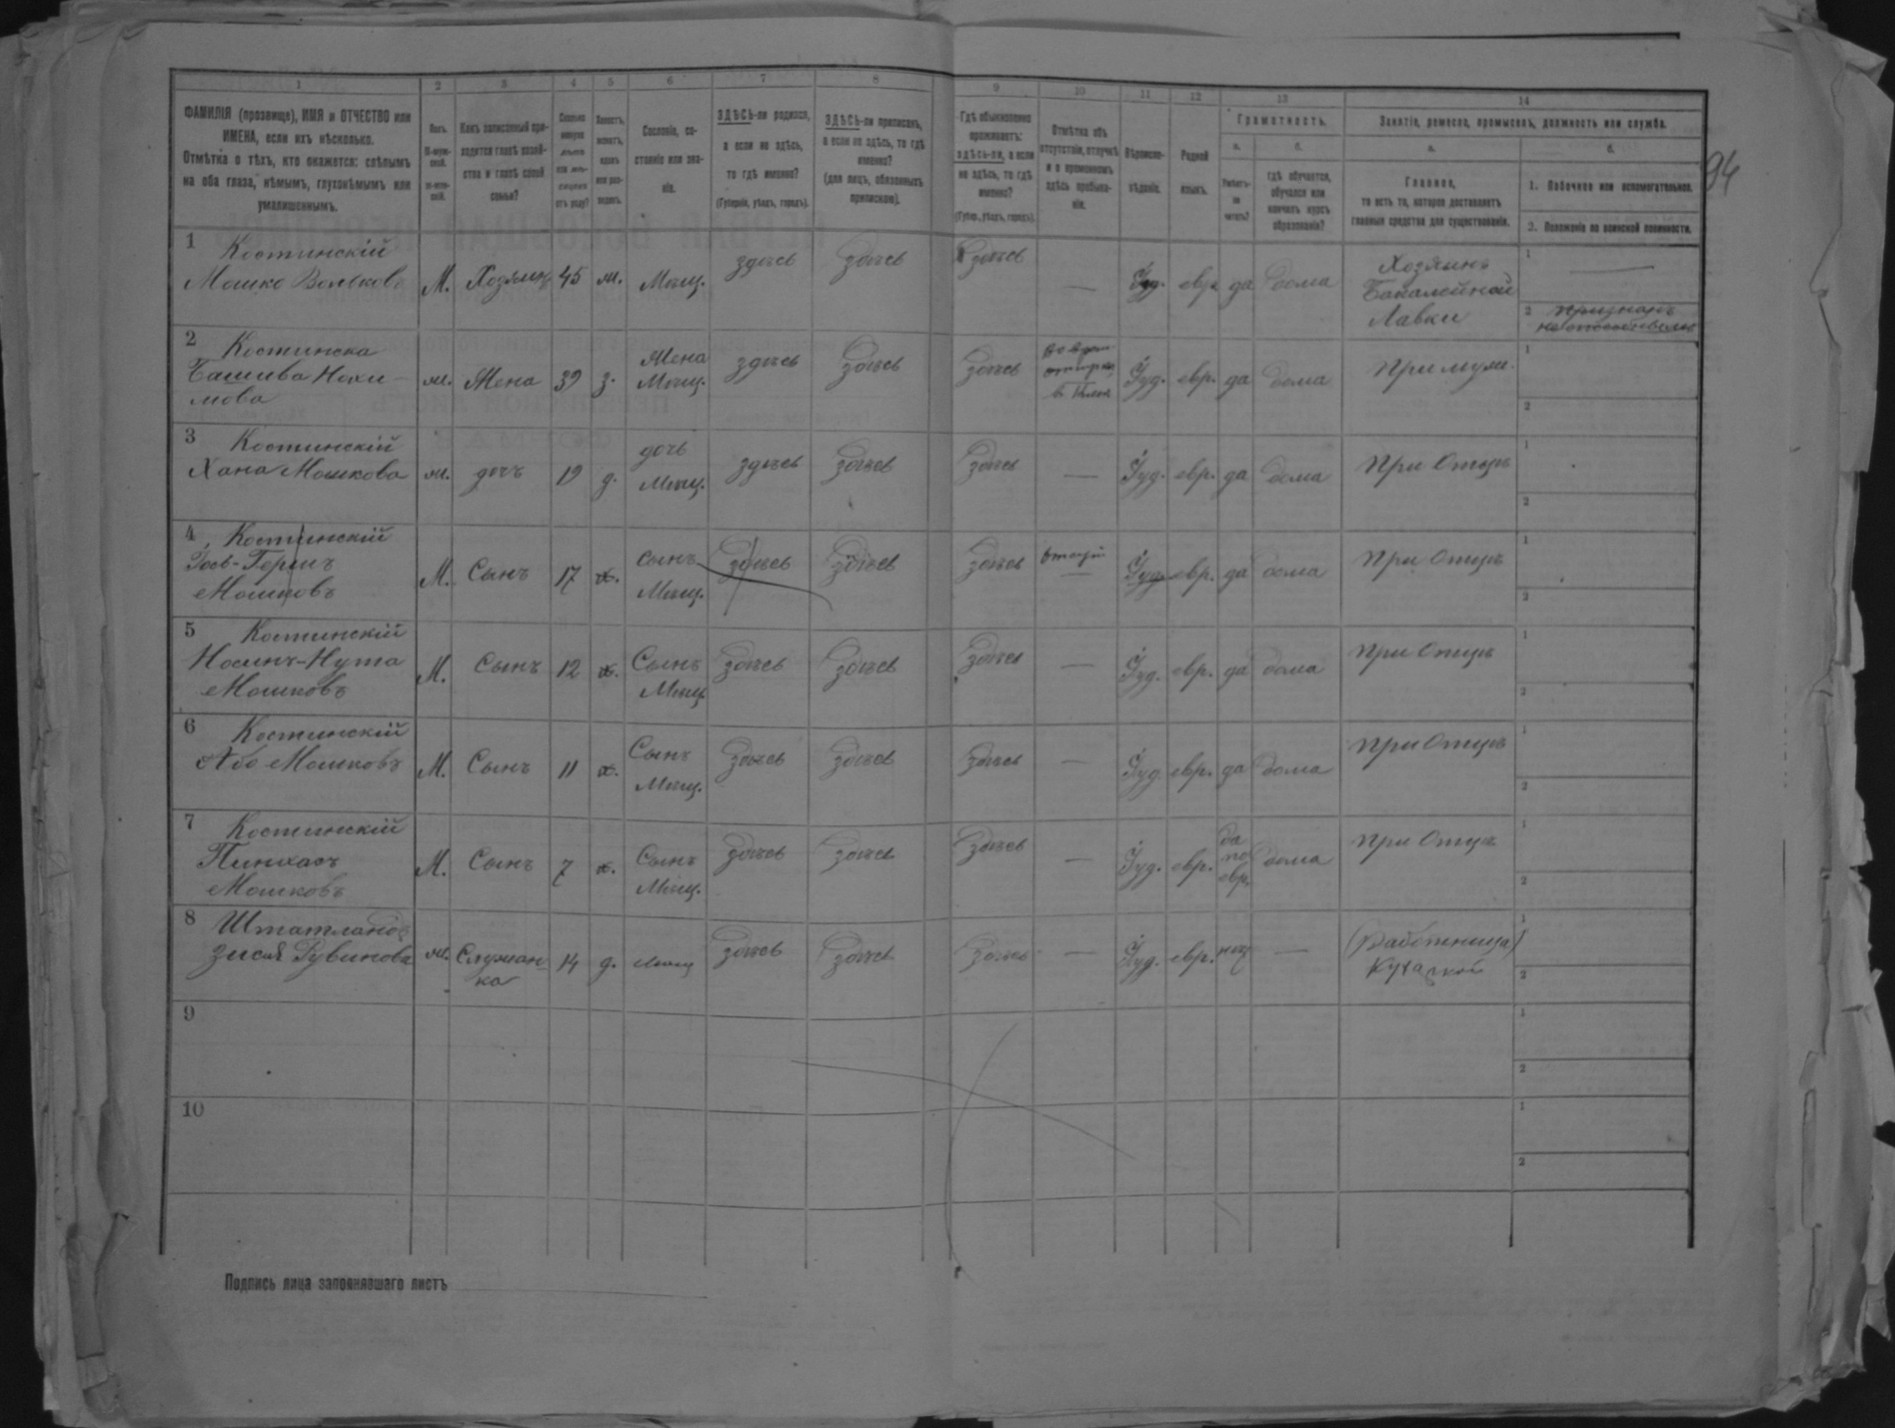 1 2 3 4 5 6 7 8 9 10 11 12 13 14
ФАМИЛІЯ (прозвище), ИМЯ и ОТЧЕСТВО или
ИМЕНА, если ихъ нѣсколько.
Отмѣтка о тѣхъ, кто окажется: слѣпымъ
на оба глаза, нѣмымъ, глухонѣмымъ или
умалишеннымъ.
Полъ.
М-муж-
ской.
Ж-жен-
скій.
Какъ записанный при-
ходится главѣ хозяй-
ства и главѣ своей
семьи?
Сколько
минуло
лѣтъ
или мѣ-
сяцевъ
отъ роду?
Холостъ,
женатъ,
вдовъ
или раз-
веденъ.
Сословіе, со-
стояніе или зва-
ніе.
ЗДѢСЬ-ли родился,
а если не здѣсь,
то гдѣ именно?
(Губернія, уѣздъ, городъ).
ЗДѢСЬ-ли приписанъ,
а если не здѣсь, то гдѣ
именно?
(для лицъ, обязанныхъ
припискою).
Гдѣ обыкновенно
проживаетъ:
ЗДѢСЬ-ли, а если
не здѣсь, то гдѣ
именно?
(Губер., уѣздъ, городъ).
Отмѣтка объ
отсутствіи, отлучкѣ
и о временномъ
здѣсь пребыва-
ніи.
Вѣроиспо-
вѣданіе.
Родной
языкъ.
Грамотность.
а.
Умѣетъ-
ли
читать?
б.
гдѣ обучается,
обучался или
кончилъ курсъ
образованія?
Занятіе, ремесло, промыселъ, должность или служба.
а.
Главное,
то есть то, которое доставляетъ
главныя средства для существованія.
б.
1. Побочное или вспомогательное.
2. Положеніе по воинской повинности.
94
1 Костинскій
Мошко Вольковъ М. Хозяинъ 45 ж. Мѣщ. здѣсь здѣсь здѣсь — Іуд. евр. да дома Хозяинъ
Бакалейной
Лавки
1 —
2 признанъ
неспособнымъ
2 Костинска
Башива Нохи-
мова ж. Жена 39 з. Жена
Мѣщ. здѣсь здѣсь здѣсь Іуд. евр. да дома При муж.
1
2
3 Костинскій
Хана Мошкова ж. дочь 19 д. дочь
Мѣщ. здѣсь здѣсь здѣсь — Іуд. евр. да дома При Отцѣ
1
2
4 Костинскій
Мошковъ М. Сынъ 17 х. сынъ
Мѣщ. здѣсь здѣсь здѣсь — Іуд. евр. да дома При Отцѣ
1
2
5 Костинскій
Іосинъ-Нута
Мошковъ М. Сынъ 12 х. Сынъ
Мѣщ. здѣсь здѣсь здѣсь — Іуд. евр. да дома При Отцѣ
1
2
6 Костинскій
Або Мошковъ М. Сынъ 11 х. Сынъ
Мѣщ. здѣсь здѣсь здѣсь — Іуд. евр. да дома При Отцѣ
1
2
7 Костинскій
Пинхасъ
Мошковъ М. Сынъ 7 х. Сынъ
Мѣщ. здѣсь здѣсь здѣсь — Іуд. евр. да
по
евр. дома При Отцѣ
1
2
8 Рувинова ж. Служан-
ка 14 д. мѣщ здѣсь здѣсь здѣсь — Іуд. евр. нѣт — (Работница)
Кухаркой
1
2
9
1
2
10
1
2
Подпись лица заполнявшаго листъ